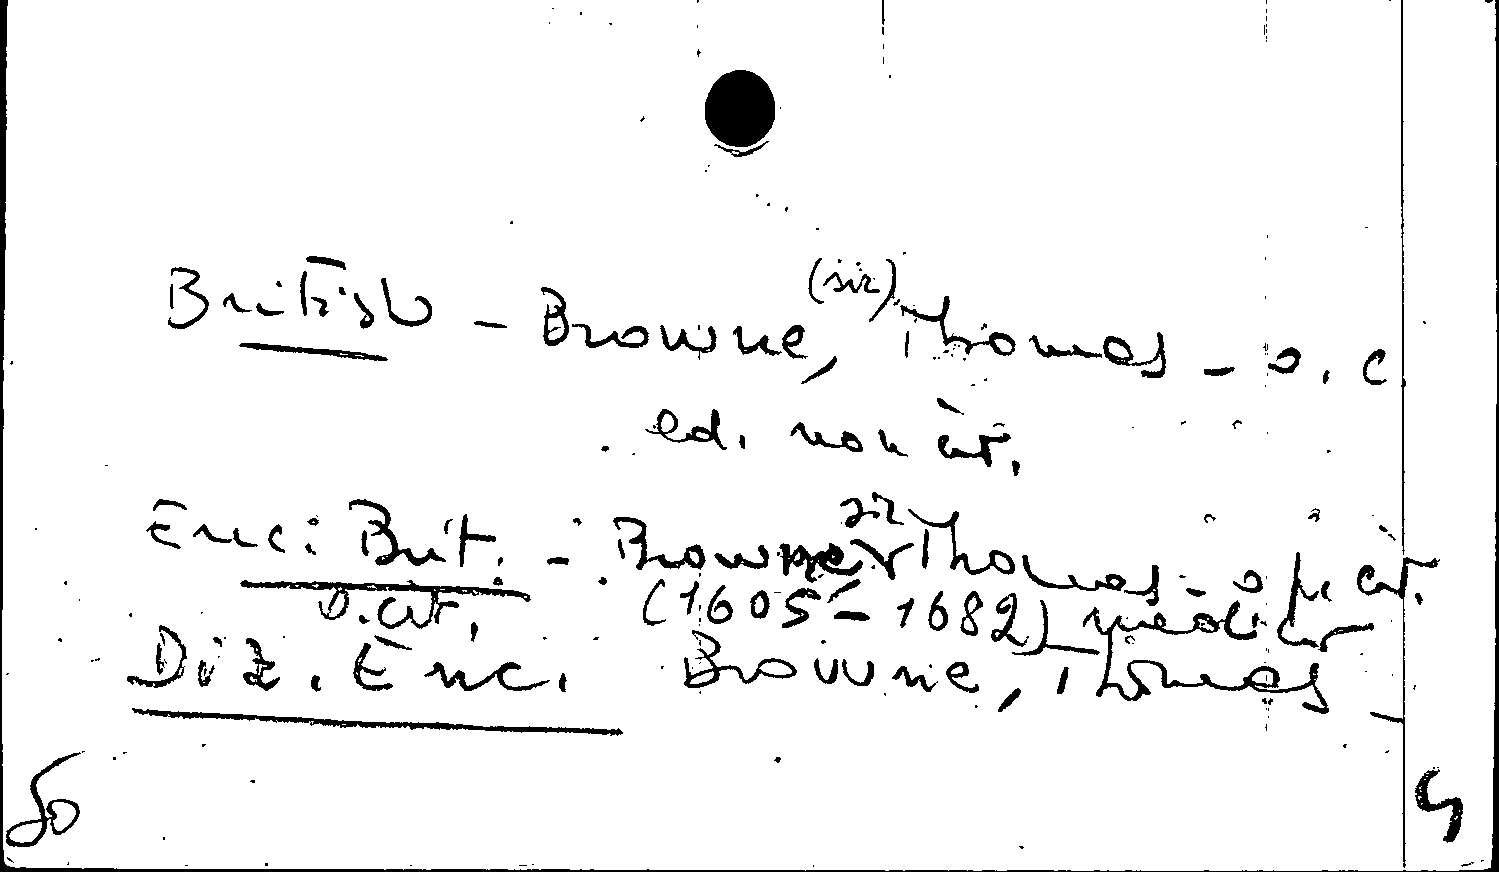 British - Browne, (sir) Thomas - o. c.
ed. non cit.
Enc. Brit. - Browne, sir Thomas - op. cit.
o. cit. (1605 - 1682) medico
Diz. Enc. Browne, Thomas -